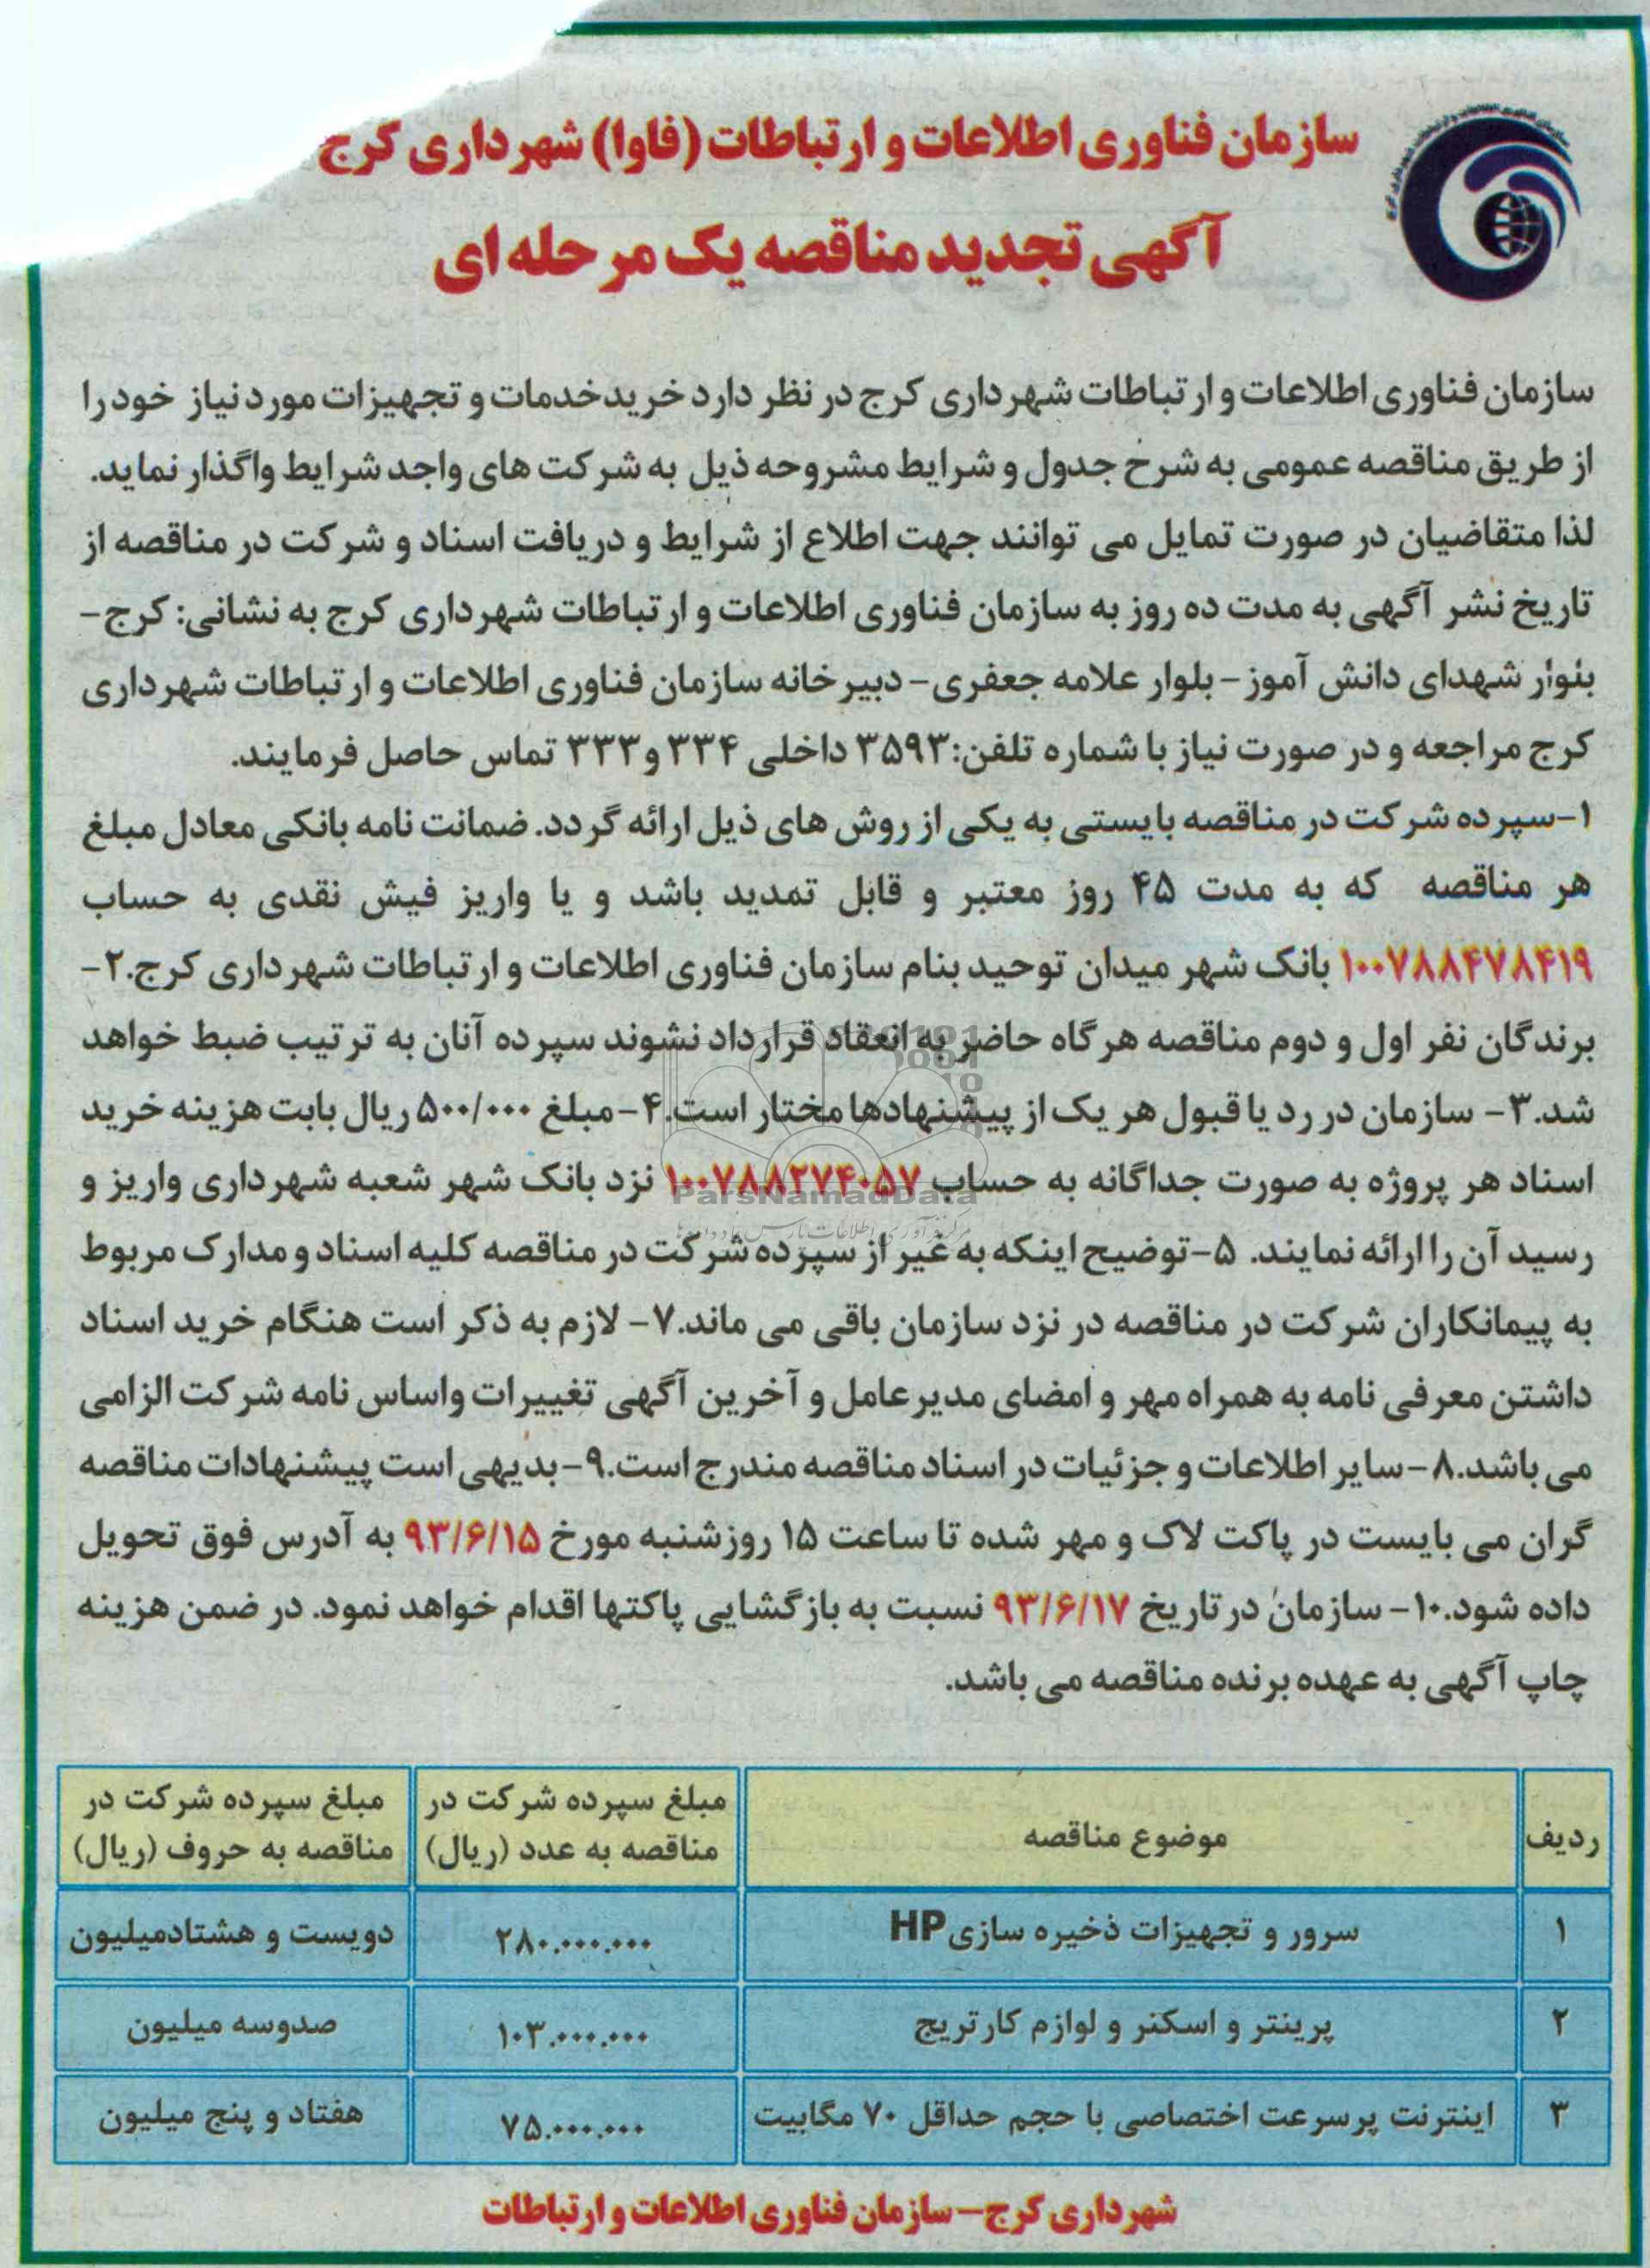 سازمان فناوری اطلاعات و ارتباطات (فاوا) شهرداری کرج
آگهی تجدید مناقصه یک مرحله ای
سازمان فناوری اطلاعات و ارتباطات شهرداری کرج در نظر دارد خرید خدمات و تجهیزات مورد نیاز خود را
از طریق مناقصه عمومی به شرح جدول و شرایط مشروحه ذیل به شرکت های واجد شرایط واگذار نماید.
لذا متقاضیان در صورت تمایل می توانند جهت اطلاع از شرایط و دریافت اسناد و شرکت در مناقصه از
تاریخ نشر آگهی به مدت ده روز به سازمان فناوری اطلاعات و ارتباطات شهرداری کرج به نشانی: کرج-
بلوار شهدای دانش آموز - بلوار علامه جعفری - دبیرخانه سازمان فناوری اطلاعات و ارتباطات شهرداری
کرج مراجعه و در صورت نیاز با شماره تلفن: ۳۵۹۳ داخلی ۳۳۴ و ۳۳۳ تماس حاصل فرمایند.
۱-سپرده شرکت در مناقصه بایستی به یکی از روش های ذیل ارائه گردد. ضمانت نامه بانکی معادل مبلغ
هر مناقصه که به مدت ۴۵ روز معتبر و قابل تمدید باشد و یا واریز فیش نقدی به حساب
۱۰۰۷۸۸۴۷۸۴۱۹ بانک شهر میدان توحید بنام سازمان فناوری اطلاعات و ارتباطات شهرداری کرج.۲-
برندگان نفر اول و دوم مناقصه هرگاه حاضر به انعقاد قرارداد نشوند سپرده آنان به ترتیب ضبط خواهد
شد.۳- سازمان در رد یا قبول هر یک از پیشنهادها مختار است.۴-مبلغ ۵۰۰/۰۰۰ ریال بابت هزینه خرید
اسناد هر پروژه به صورت جداگانه به حساب ۱۰۰۷۸۸۲۷۴۰۵۷ نزد بانک شهر شعبه شهرداری واریز و
رسید آن را ارائه نمایند. ۵-توضیح اینکه به غیر از سپرده شرکت در مناقصه کلیه اسناد و مدارک مربوط
به پیمانکاران شرکت در مناقصه در نزد سازمان باقی می ماند.۷- لازم به ذکر است هنگام خرید اسناد
داشتن معرفی نامه به همراه مهر و امضای مدیرعامل و آخرین آگهی تغییرات واساس نامه شرکت الزامی
می باشد.۸-سایر اطلاعات و جزئیات در اسناد مناقصه مندرج است.۹-بدیهی است پیشنهادات مناقصه
گران می بایست در پاکت لاک و مهر شده تا ساعت ۱۵ روزشنبه مورخ ۹۳/۶/۱۵ به آدرس فوق تحویل
داده شود.۱۰- سازمان در تاریخ ۹۳/۶/۱۷ نسبت به بازگشایی پاکتها اقدام خواهد نمود. در ضمن هزینه
چاپ آگهی به عهده برنده مناقصه می باشد.
ردیف موضوع مناقصه مبلغ سپرده شرکت در مناقصه به عدد (ریال) مبلغ سپرده شرکت در مناقصه به حروف (ریال)
۱ سرور و تجهیزات ذخیره سازی HP ۲۸۰.۰۰۰.۰۰۰ دویست و هشتادمیلیون
۲ پرینتر و اسکنر و لوازم کارتریج ۱۰۳.۰۰۰.۰۰۰ صدوسه میلیون
۳ اینترنت پرسرعت اختصاصی با حجم حداقل ۷۰ مگابیت ۷۵.۰۰۰.۰۰۰ هفتاد و پنج میلیون
شهرداری کرج - سازمان فناوری اطلاعات و ارتباطات
ParsNamadData